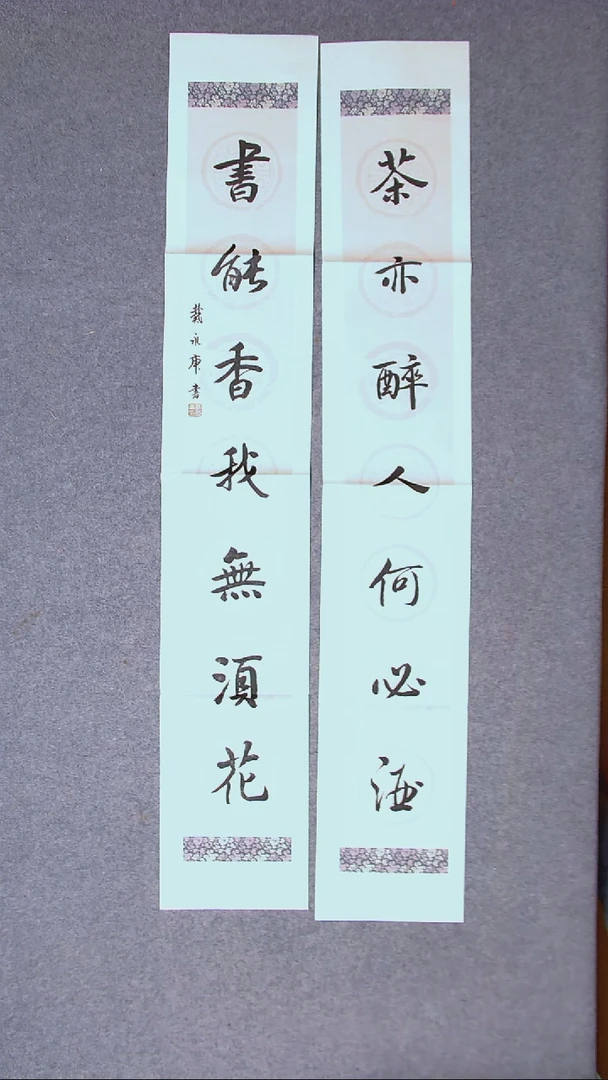 茶亦醉人何必酒
書能香我無須花
戴永庫書